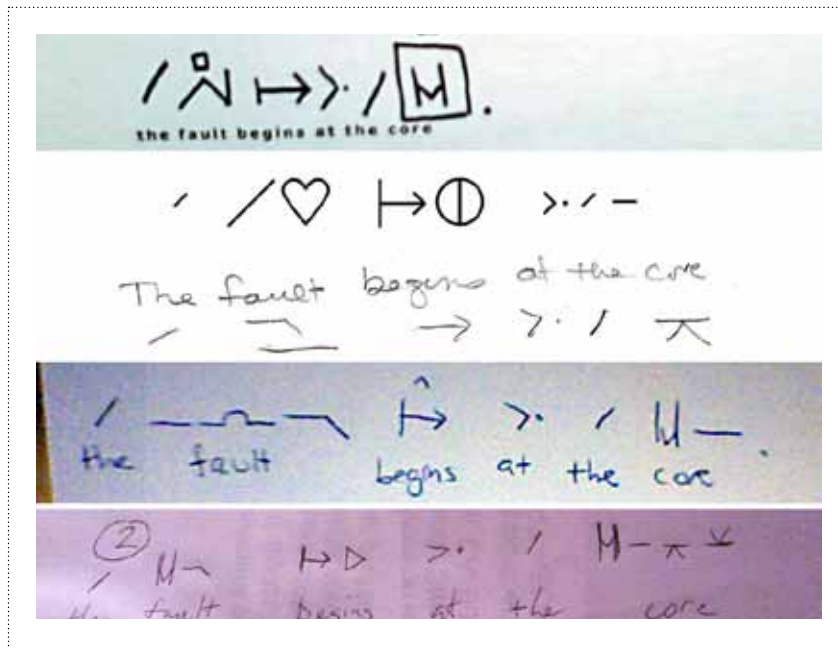 the fault begins at the core
The fault begins at the core
the fault begins at the core
2
the fault begins at the core